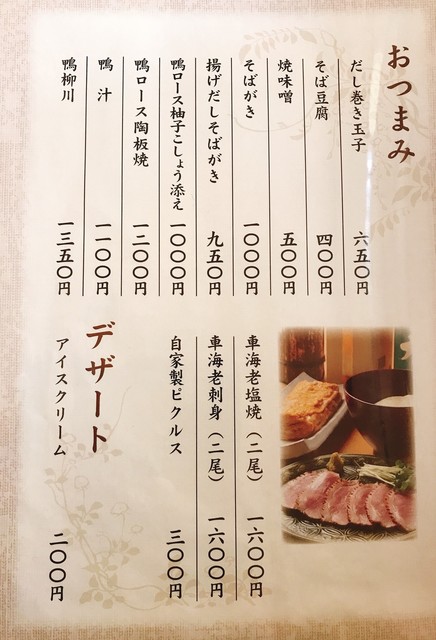 おつまみ
だし巻き玉子 六五〇円
そば豆腐 四〇〇円
焼味噌 五〇〇円
そばがき 一〇〇〇円
揚げだしそばがき 九五〇円
鴨ロース柚子こしょう添え 一〇〇〇円
鴨ロース陶板焼 一二〇〇円
鴨汁 一一〇〇円
鴨柳川 一三五〇円
車海老塩焼(二尾) 一六〇〇円
車海老刺身(二尾) 一六〇〇円
自家製ピクルス 三〇〇円
デザート
アイスクリーム 二〇〇円